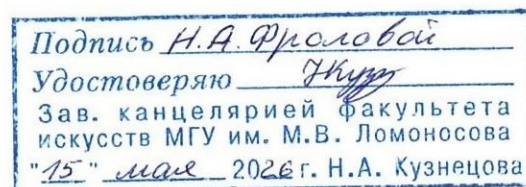 Подпись Н.А. Фроловой
Удостоверяю
Зав. канцелярией факультета
искусств МГУ им. М.В. Ломоносова
"15" мая 2026 г. Н.А. Кузнецова